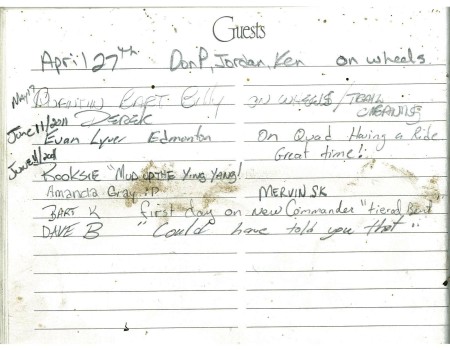 Guests
April 27th Don P, Jordan, Ken on wheels
Bart Billy ON WHEELS / TRAIL
June 11/2011 DEREK CLEANING
Evan Lyver Edmonton On Quad Having a Ride
Great time!
Rooksie "MUD UP THE YING YANG!
Amanda Gray :P MERVIN SK
BART K first day on new Commander
DAVE B "Could have told you that"